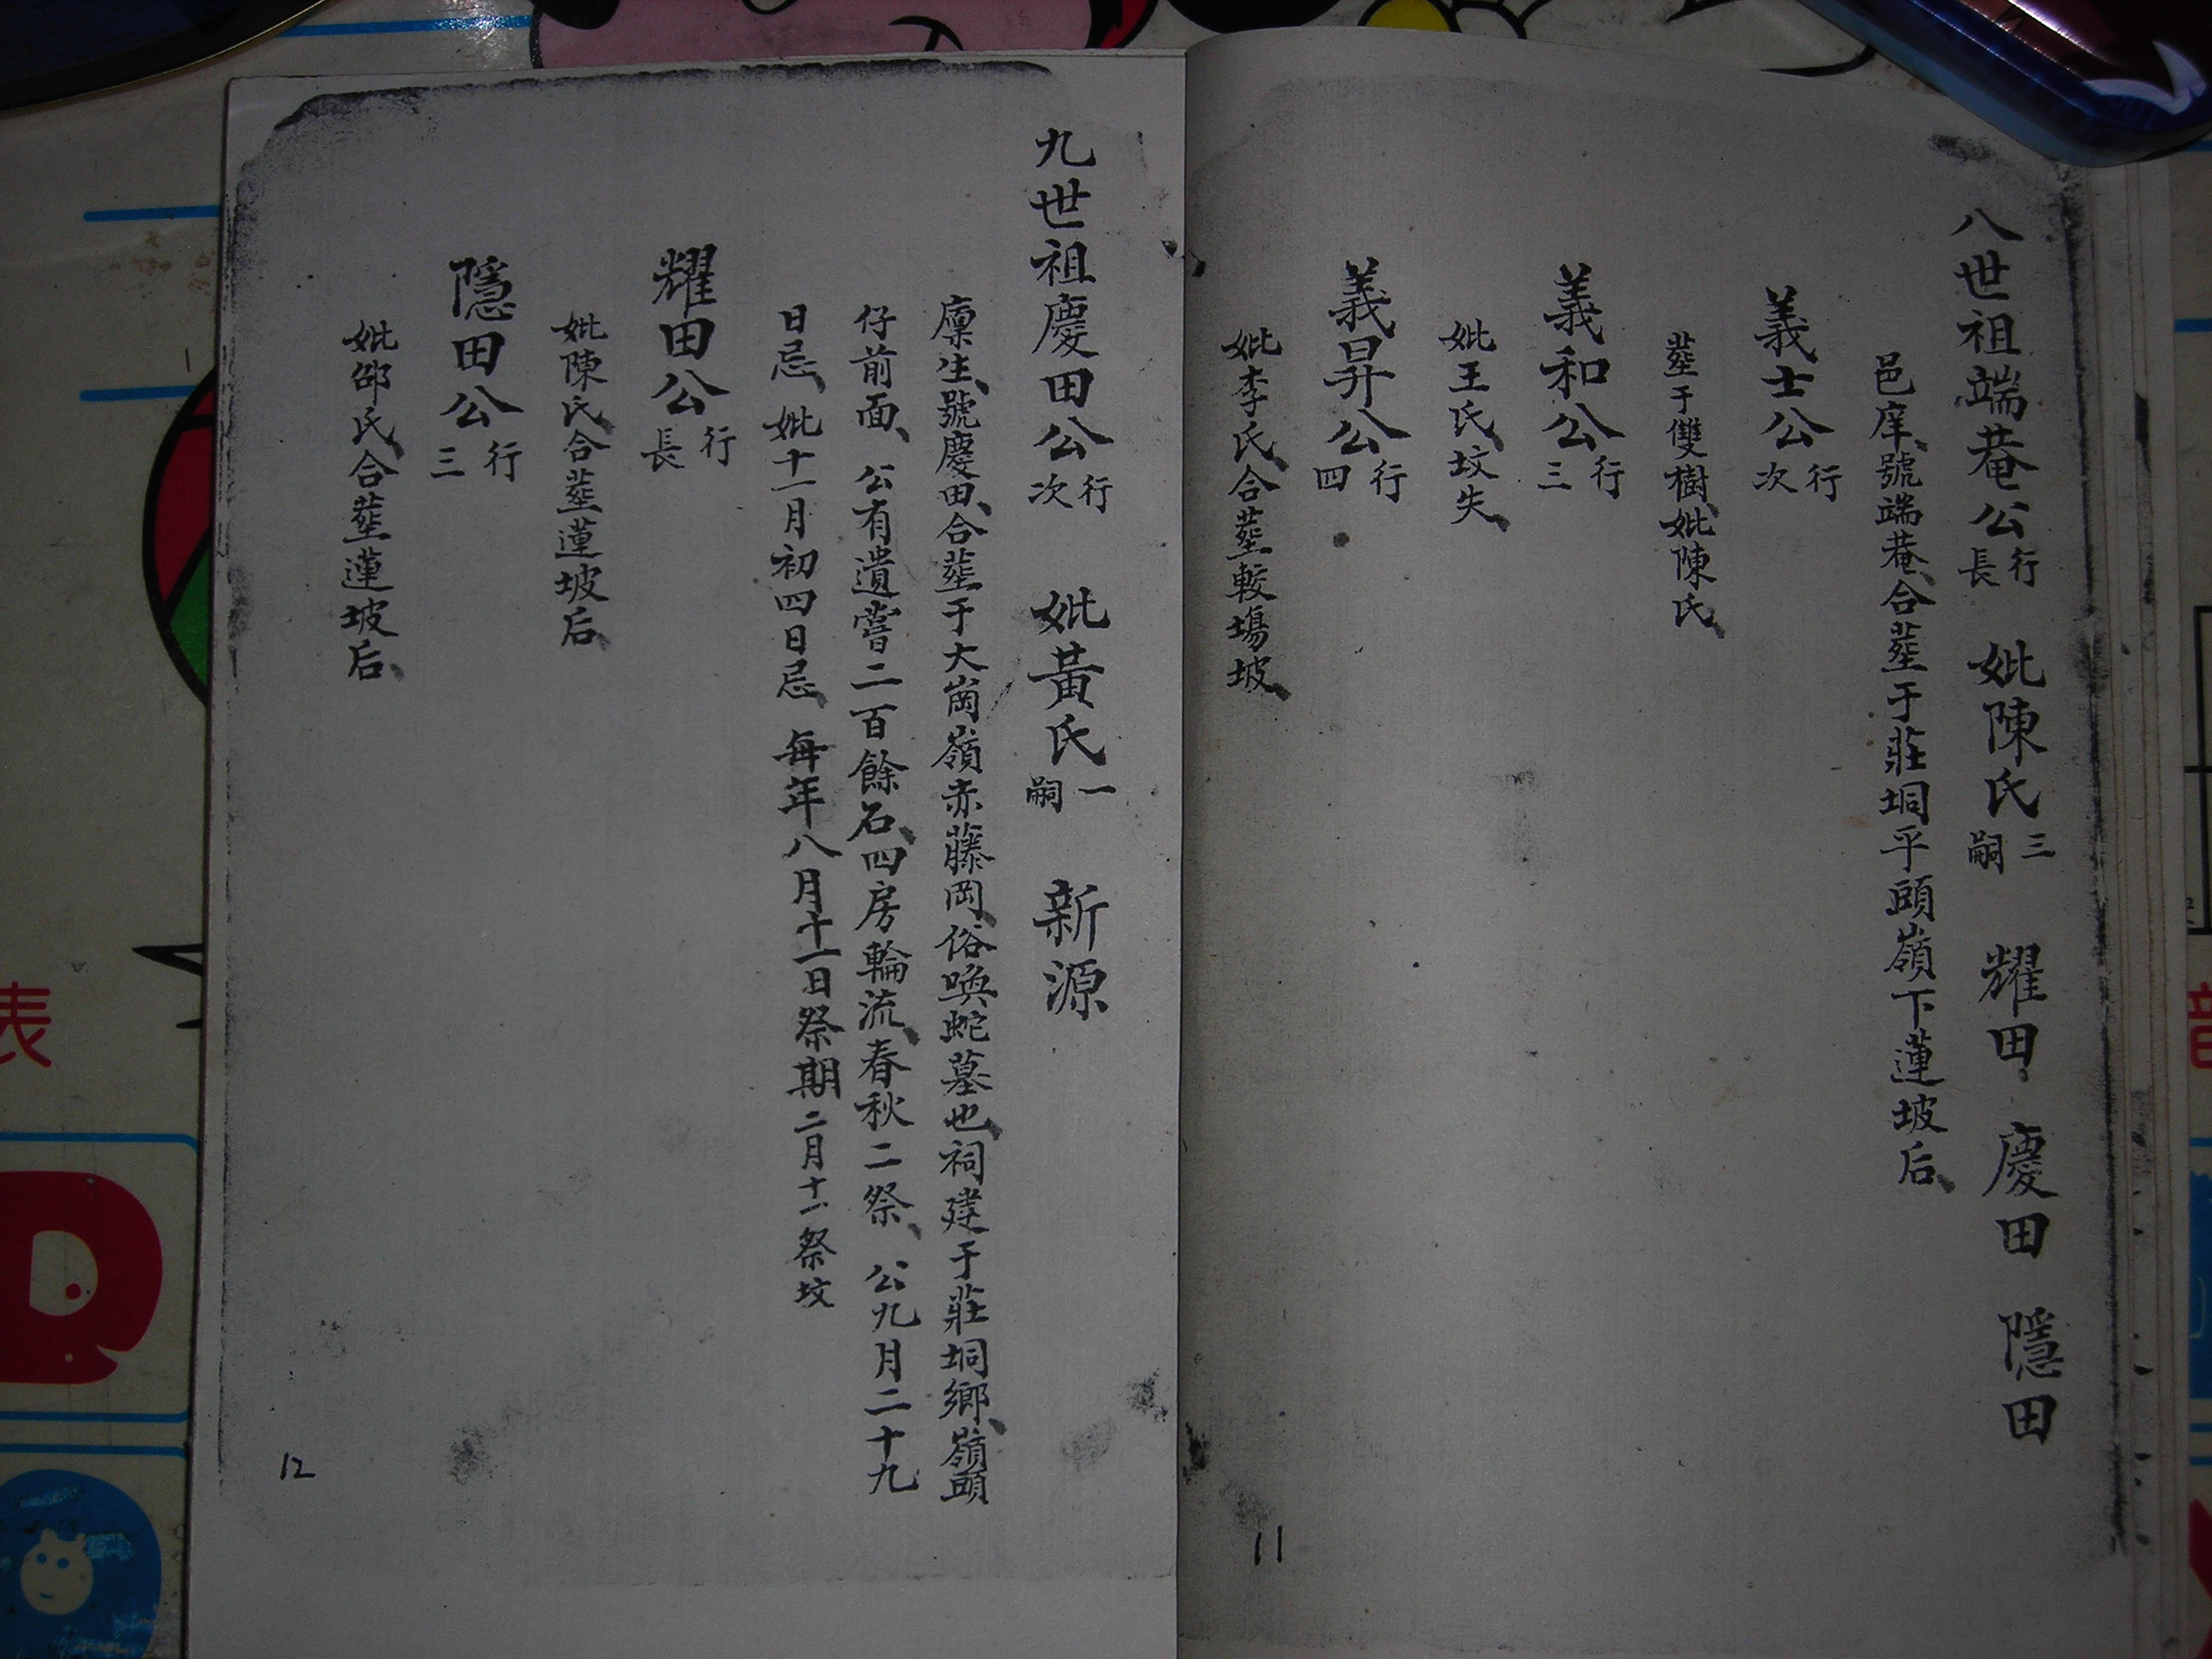 八世祖端菴公行長 妣陳氏三嗣 耀田 慶田 隱田
邑庠、號端菴、合塟于莊垌平頭嶺下蓮坡后、
義士公行次
塟于雙樹、妣陳氏、
義和公行三
妣王氏、坟失、
義昇公行四
妣李氏、合塟較塲坡、
11
九世祖慶田公行次 妣黃氏一嗣 新源
廪生、號慶田、合塟于大崗嶺赤藤岡、俗喚蛇墓也、祠建于莊垌鄉、嶺頭
仔前面、公有遺嘗二百餘石、四房輪流、春秋二祭、公九月二十九
日忌、妣十一月初四日忌、每年八月十一日祭期二月十一祭坟
耀田公行長
妣陳氏、合塟蓮坡后、
隱田公行三
妣邵氏、合塟蓮坡后、
12
表
D